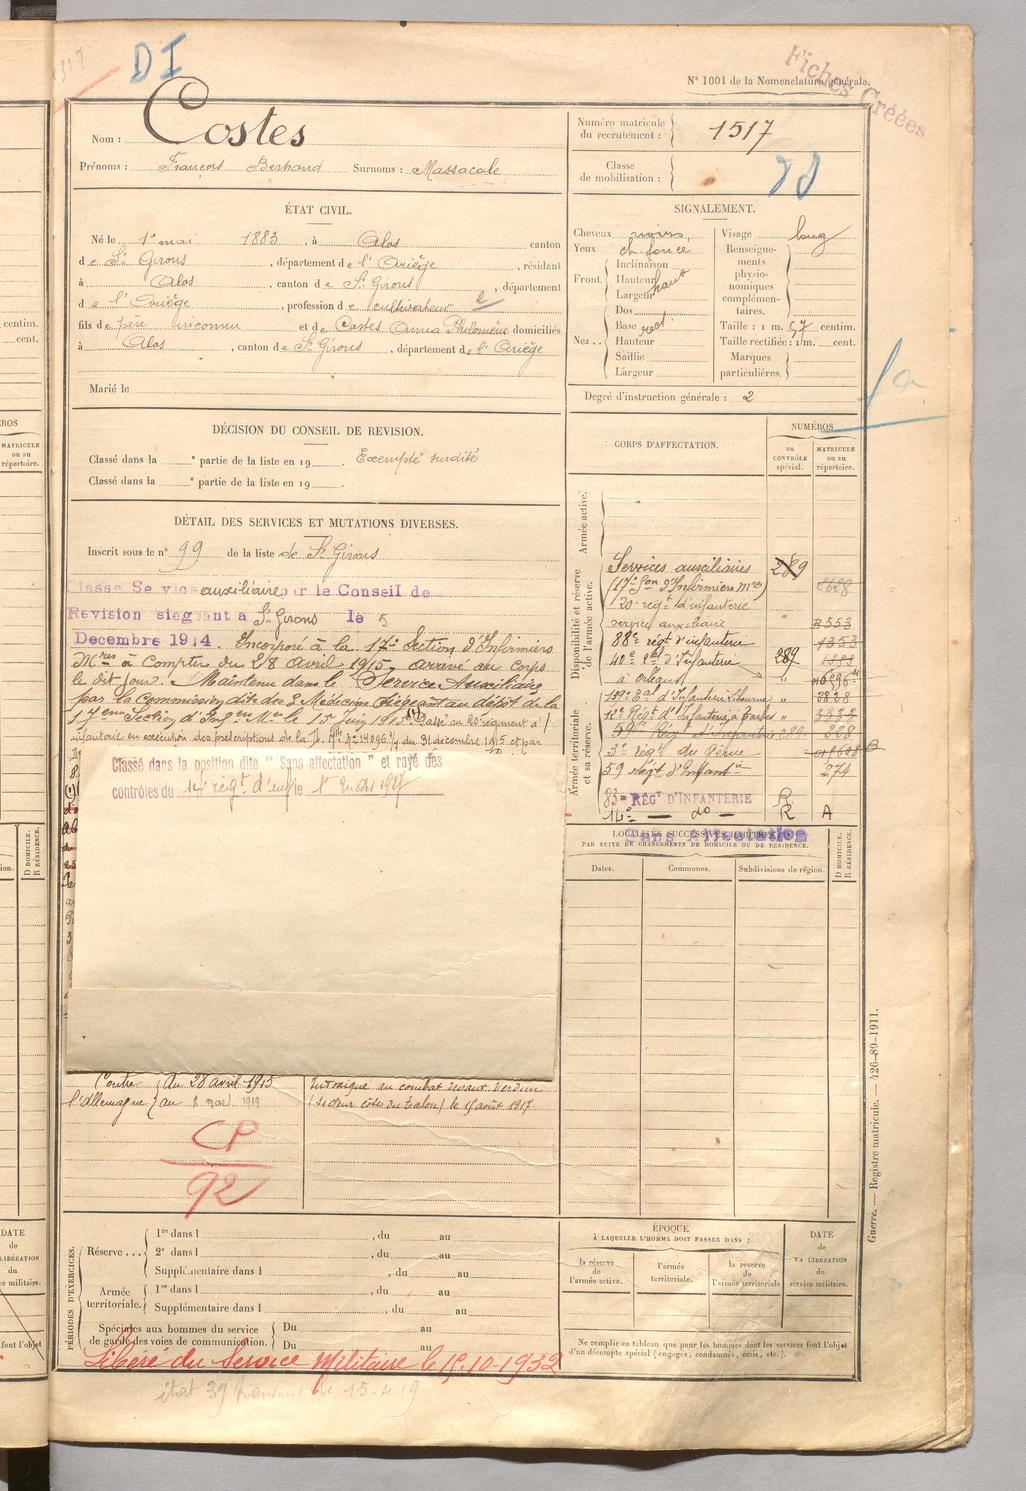 DI
N° 1001 de la Nomenclature générale.
Fiches Créées
Nom : Costes
Prénoms : François Bertrand Surnoms : Massacale
Numéro matricule du recrutement : 1517
Classe de mobilisation :
ÉTAT CIVIL.
Né le 1er mai 1883, à Alos canton
de St Girons, département de l'Ariège, résidant
à Alos, canton de St Girons, département
de l'Ariège, profession de cultivateur
fils de père inconnu et de Costes Anna Philomène domiciliés
à Alos, canton de St Girons, département de l'Ariège
Marié le
SIGNALEMENT.
Cheveux
Yeux ch. foncé
Front.
Inclinaison
Hauteur haut
Largeur
Nez..
Dos
Base rect.
Hauteur
Saillie
Largeur
Visage long
Renseignements physionomiques complémentaires.
Taille : 1 m. 57 centim.
Taille rectifiée : 1 m. cent.
Marques particulières.
Degré d'instruction générale : 2
DÉCISION DU CONSEIL DE REVISION.
Classé dans la e partie de la liste en 19 . Exempté surdité
Classé dans la e partie de la liste en 19 .
DÉTAIL DES SERVICES ET MUTATIONS DIVERSES.
Inscrit sous le n° 99 de la liste de St Girons
Classé Service auxiliaire par le Conseil de
Revision siégeant à St Girons le 5
Decembre 1914. Incorporé à la 17e Section d'Infirmiers
Mres à compter du 28 avril 1915, arrivé au corps
le dit jour. Maintenu dans le Service Auxiliaire
par la Commission dite des 3 Médecins siégeant au dépôt de la
17eme Section d'Infers Mres le 15 juin 1915. Passé au 20e régiment d'
infanterie en exécution des prescriptions de la du 31 décembre 1915 et par
Classé dans la position dite "Sans affectation" et rayé des
contrôles du 14e régt d'inf le 1er 1927
CORPS D'AFFECTATION.
NUMÉROS
au CONTRÔLE spécial.
MATRICULE ou au répertoire.
Armée active.
Disponibilité et réserve de l'armée active.
Armée territoriale et sa réserve.
Services auxiliaires 289
(17e Son d'Infirmiers mres)
20e régt d'infanterie
service auxiliaire " 553
88e régt d'infanterie 1353
40e Rat d'Infanterie 289 1393
à Orléans "
Et d'Infanterie Libourne " 3828
12e Régt d'Infanterie à Tarbes "
59e Régt d'Infanterie 289 228
2e régt du Génie
59 Régt d'Infantie 274
83e REGt D'INFANTERIE R
14e — do — R A
Sans Affectation
LOCALITÉS SUCCESSIVES HABITÉES
PAR SUITE DE CHANGEMENTS DE DOMICILE OU DE RÉSIDENCE.
Dates.
Communes.
Subdivisions de région.
D DOMICILE.
R RÉSIDENCE.
Contre l'Allemagne
du 28 avril 1915
au 8 mars 1919
Intoxiqué au combat devant Verdun
(secteur côte du talon) le 15 août 1917
CP
92
PÉRIODES D'EXERCICES.
Réserve...
1re dans l , du au
2e dans l , du au
Supplémentaire dans l , du au
Armée territoriale.
1re dans l , du au
Supplémentaire dans l , du au
Spéciales aux hommes du service de garde des voies de communication.
Du au
Du au
ÉPOQUE
À LAQUELLE L'HOMME DOIT PASSER DANS :
la réserve de l'armée active.
l'armée territoriale.
la réserve de l'armée territoriale
DATE de LA LIBÉRATION du service militaire.
Ne remplir ce tableau que pour les hommes dont les services font l'objet
d'un décompte spécial (engagés, condamnés, omis, etc.).
Libéré du Service Militaire le 15-10-1932
état 39 du 15-4-19
Guerre. — Registre matricule. — 426-89-1911.